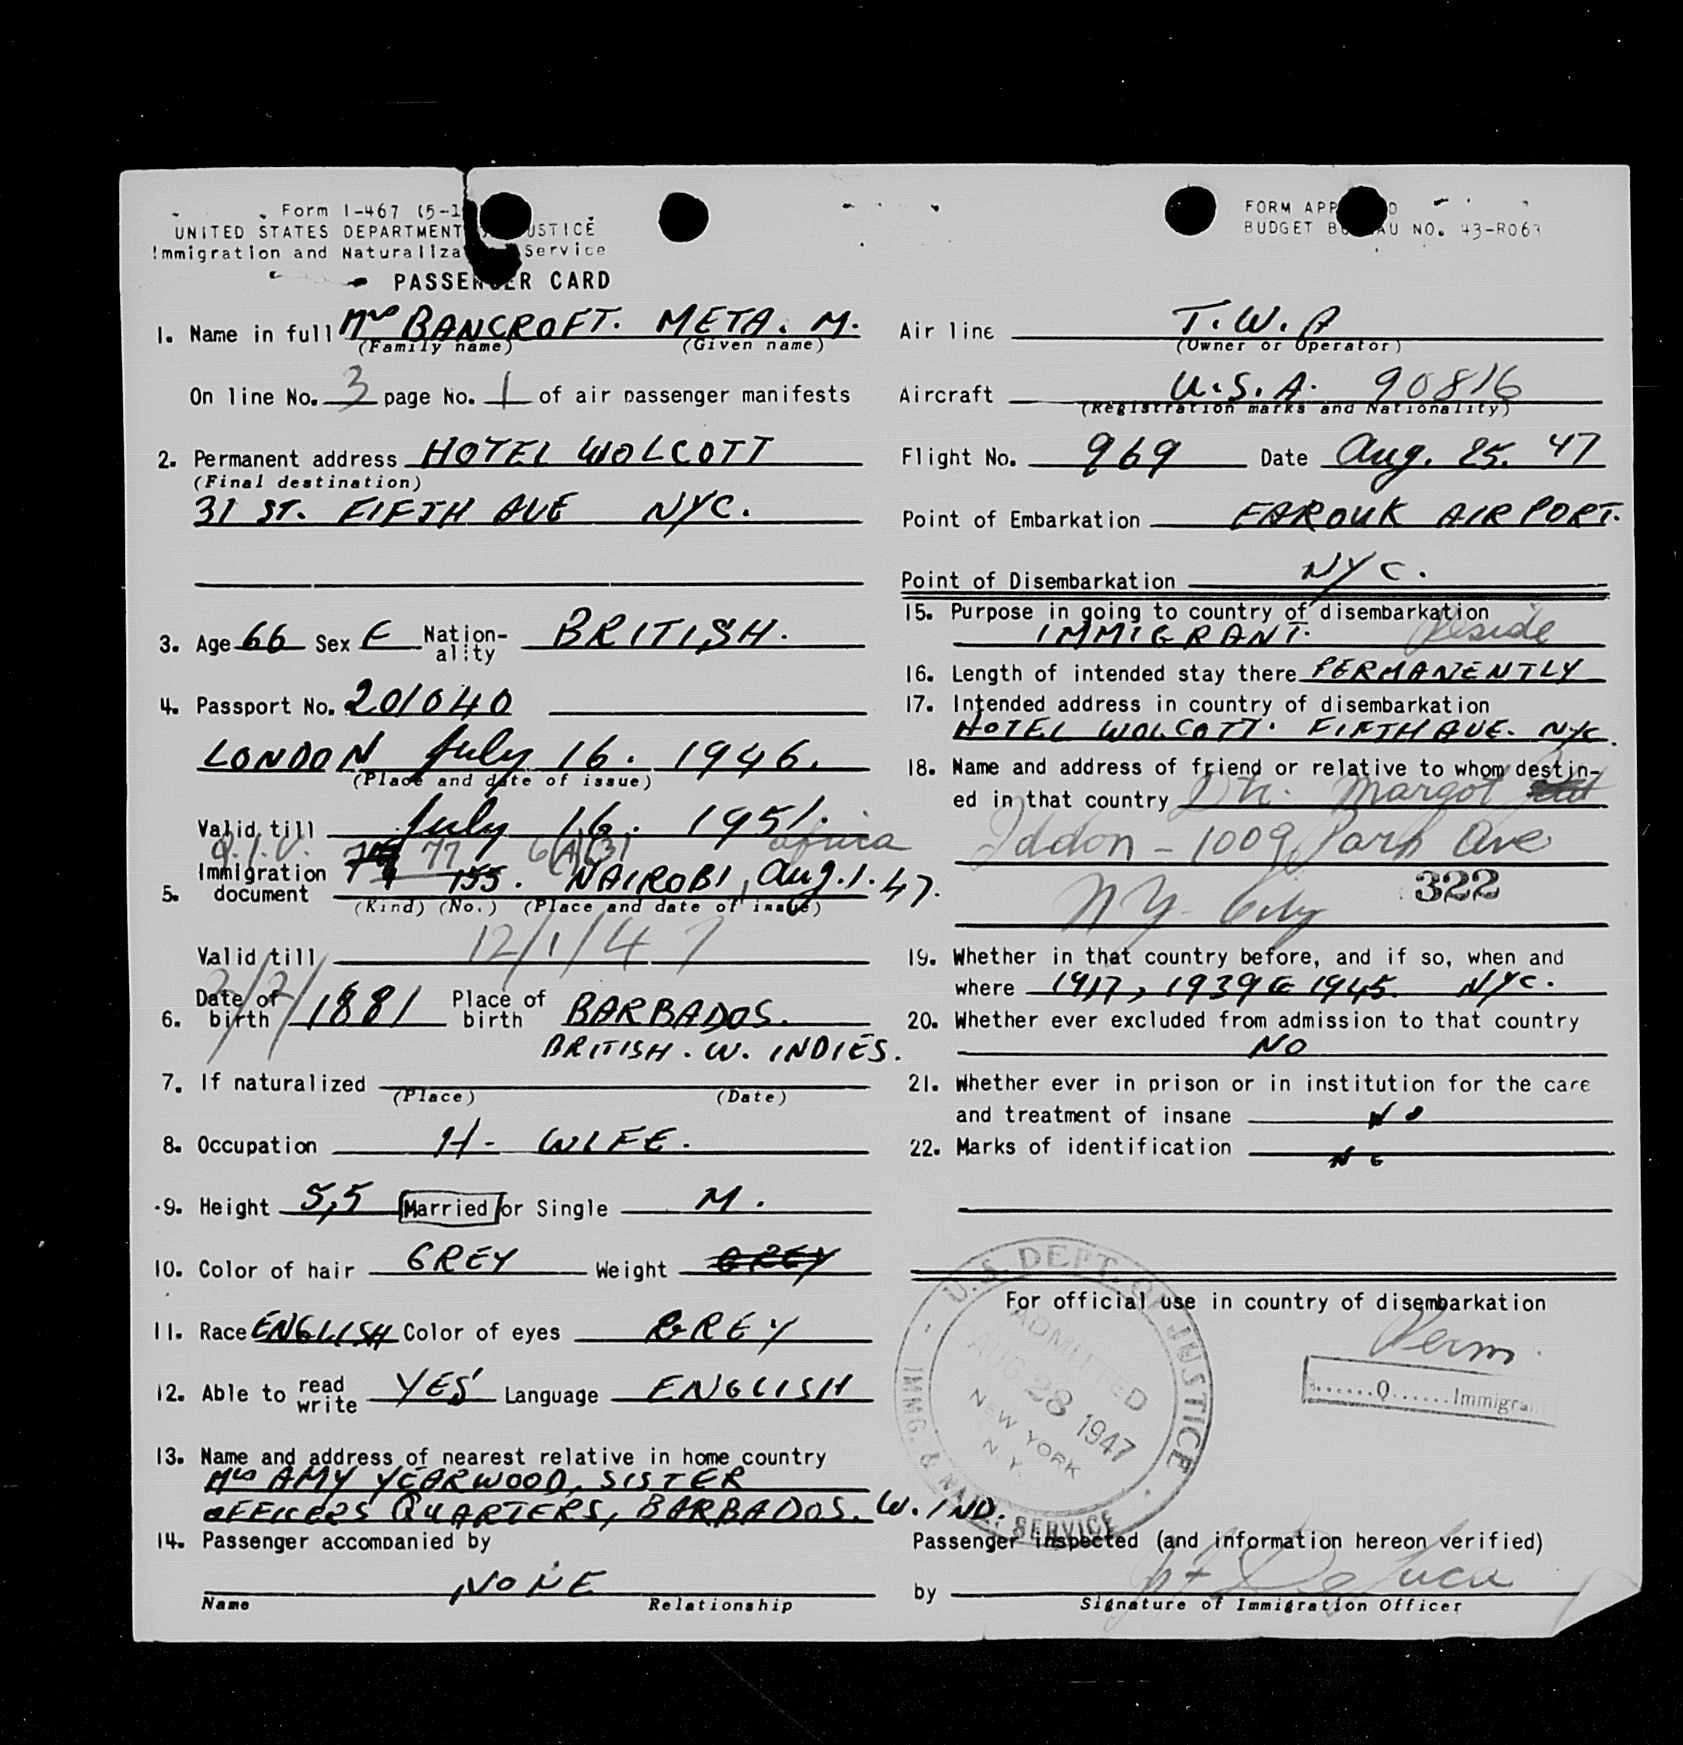 Form I-467 (5-1
UNITED STATES DEPARTMENT USTICE
Immigration and Naturaliza Service
PASSENGER CARD
FORM APP D
BUDGET B AU NO. 43-R063
1. Name in full Mrs BANCROFT. META. M.
(Family name) (Given name)
On line No. 3 page No. 1 of air passenger manifests
2. Permanent address HOTEL WOLCOTT
(Final destination)
31 ST. FIFTH AVE NYC.
3. Age 66 Sex F Nation-ality BRITISH.
4. Passport No. 201040
LONDON July 16. 1946.
(Place and date of issue)
Valid till July 16. 1951.
Q.I.V. 77 Africa
5. Immigration document 155. NAIROBI, Aug. 1. 47.
(Kind) (No.) (Place and date of issue)
Valid till 12/1/47
6. Date of birth 2/2/1881 Place of birth BARBADOS.
BRITISH. W. INDIES.
7. If naturalized
(Place) (Date)
8. Occupation H- WIFE.
9. Height 5,5 Married or Single M.
10. Color of hair GREY Weight GREY
11. Race ENGLISH Color of eyes GREY
12. Able to read write YES Language ENGLISH
13. Name and address of nearest relative in home country
Mrs AMY YEARWOOD, SISTER
OFFICERS QUARTERS, BARBADOS. W. IND.
14. Passenger accompanied by
NONE
Name Relationship
Air line T.W.A
(Owner or Operator)
Aircraft U.S.A. 90816
(Registration marks and Nationality)
Flight No. 969 Date Aug. 25. 47
Point of Embarkation FAROUK AIRPORT.
Point of Disembarkation NYC.
15. Purpose in going to country of disembarkation
IMMIGRANT. Reside
16. Length of intended stay there PERMANENTLY
17. Intended address in country of disembarkation
HOTEL WOLCOTT. FIFTH AVE. NYC.
18. Name and address of friend or relative to whom destin-
ed in that country Dtr. Margot
Iddon - 1009 Park Ave
NY. City 322
19. Whether in that country before, and if so, when and
where 1917, 1939 & 1945. NYC.
20. Whether ever excluded from admission to that country
NO
21. Whether ever in prison or in institution for the care
and treatment of insane NO
22. Marks of identification NO
For official use in country of disembarkation
Perm.
Q Immigrant
U.S. DEPT. OF JUSTICE
ADMITTED
AUG 28 1947
NEW YORK
N.Y.
IMMG. & NATZ. SERVICE
Passenger inspected (and information hereon verified)
by De Luca
Signature of Immigration Officer